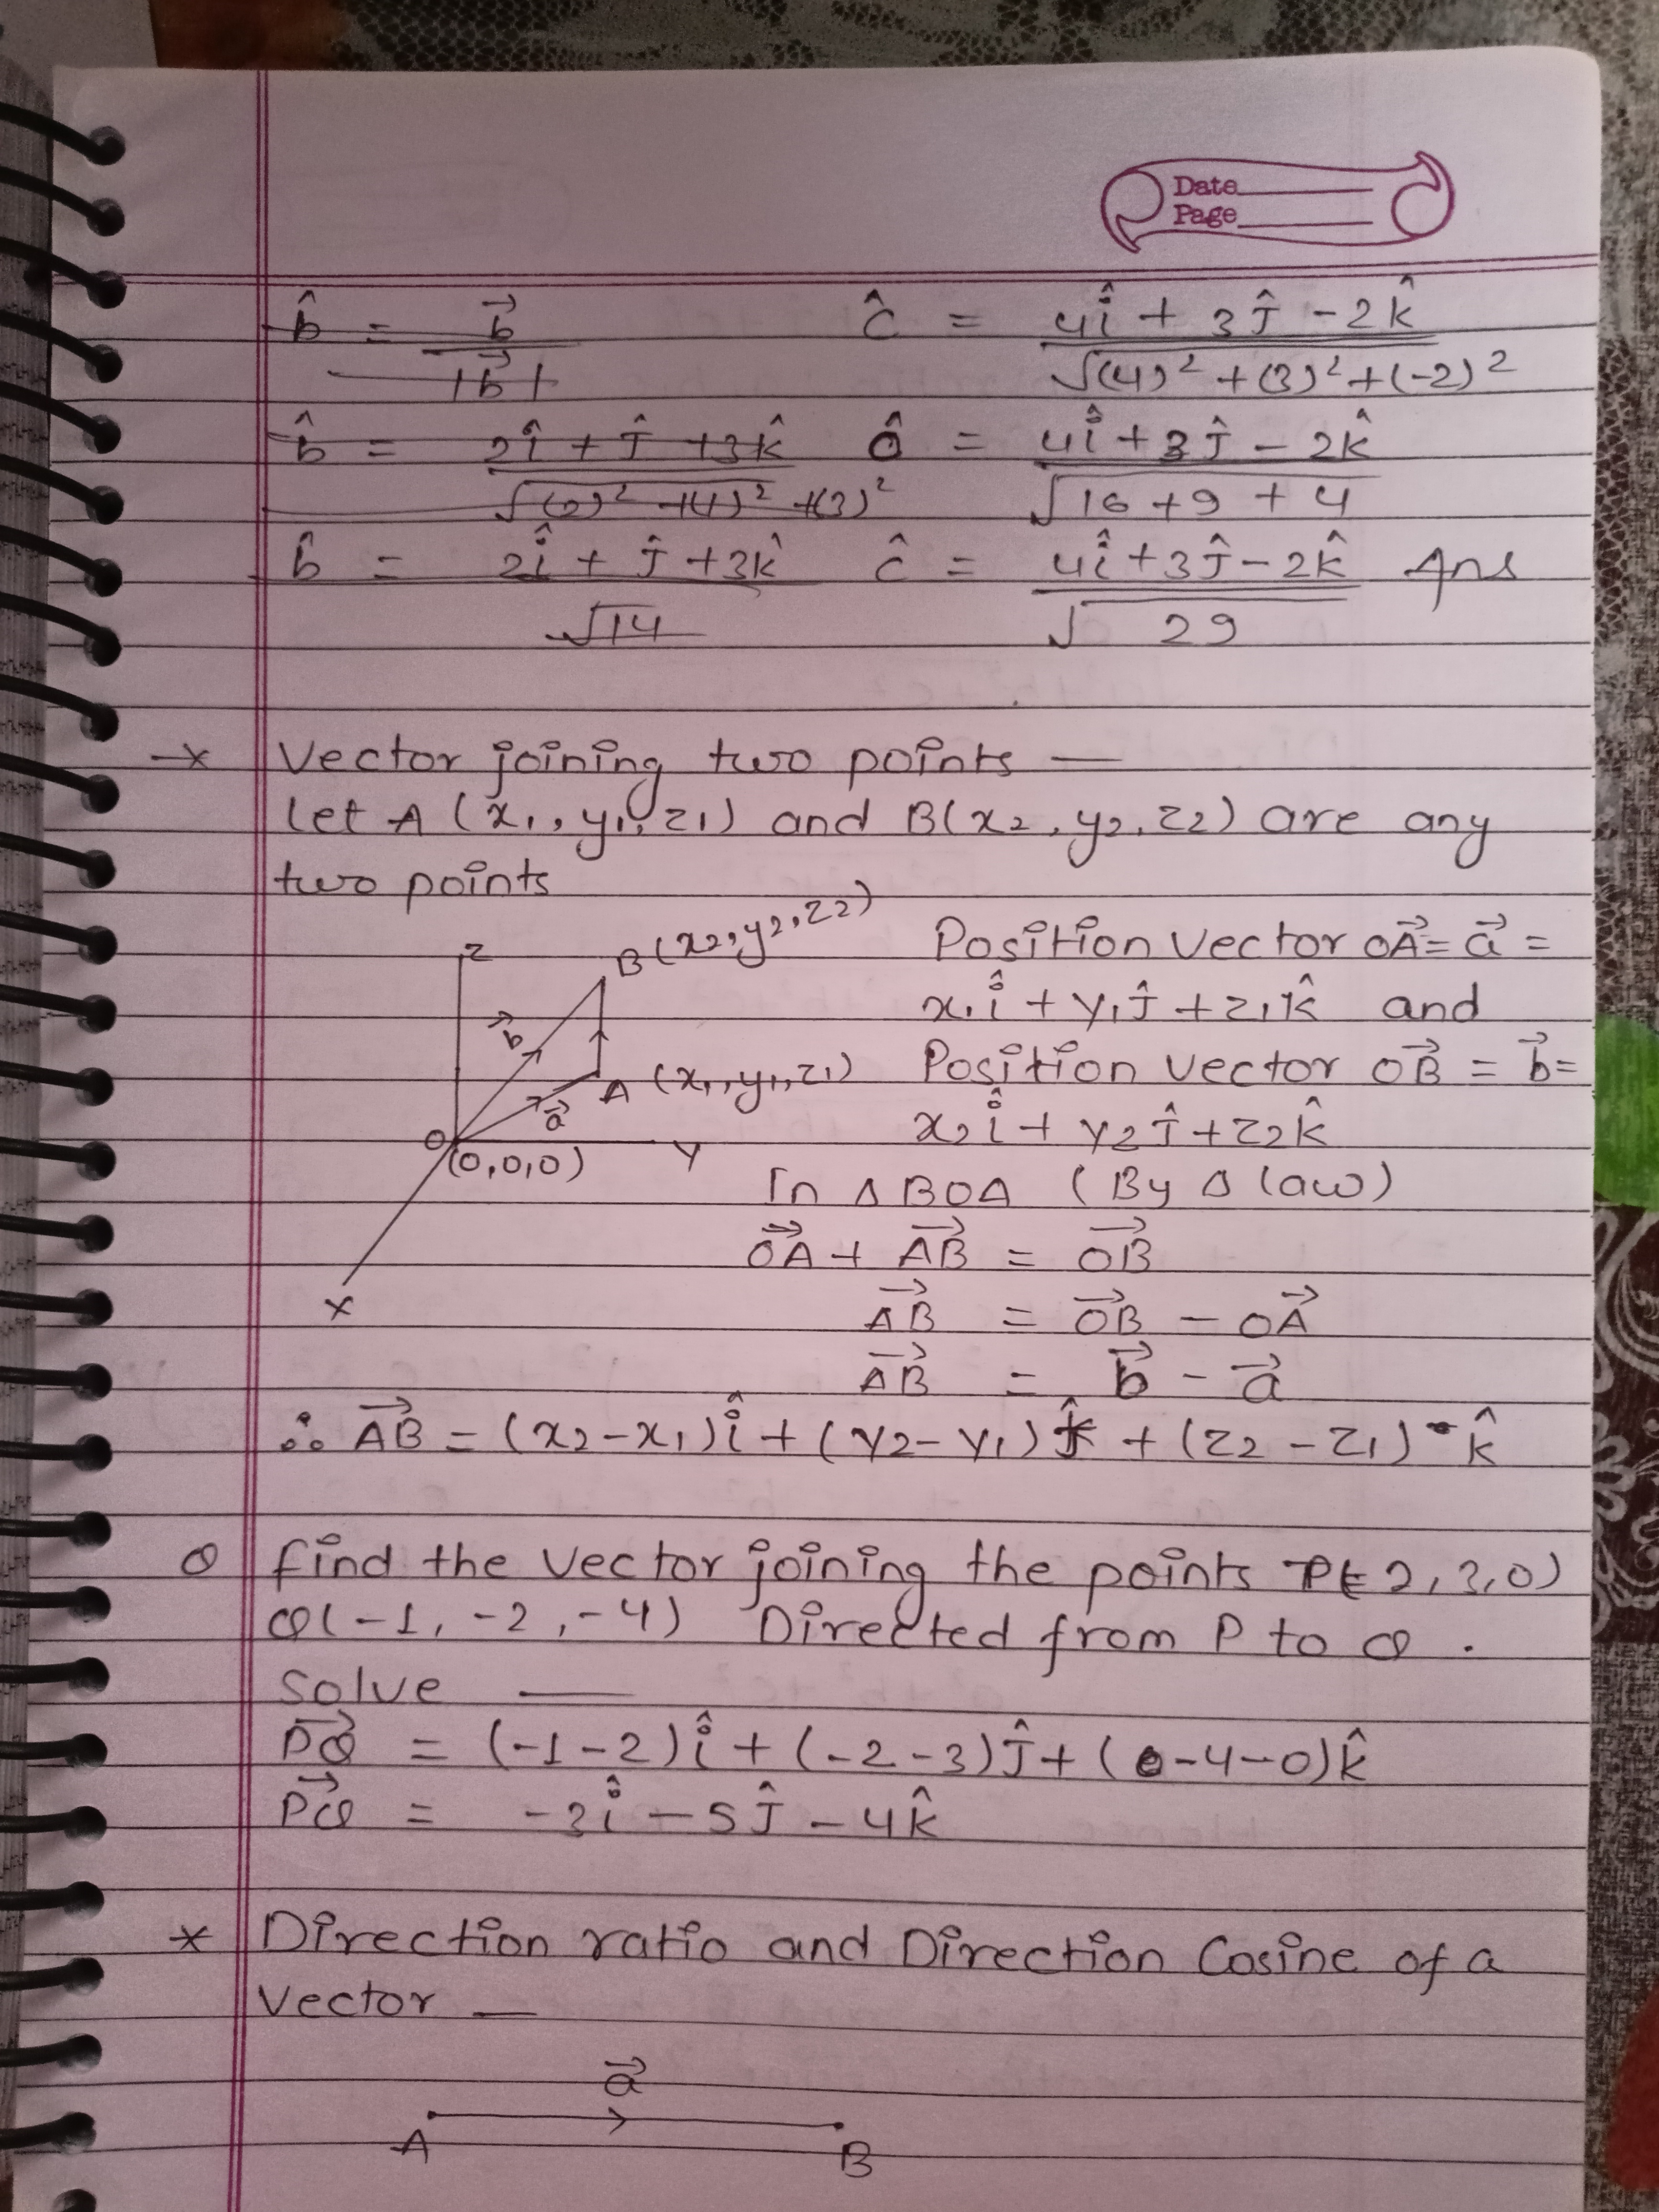 Date
Page
b̂ = b⃗ / |b⃗| ĉ = 4î + 3ĵ - 2k̂ / √(4)² + (3)² + (-2)²
b̂ = 2î + ĵ + 3k̂ / ĉ = 4î + 3ĵ - 2k̂ / √16 + 9 + 4
b̂ = 2î + ĵ + 3k̂ / √14 ĉ = 4î + 3ĵ - 2k̂ / √29 Ans
* Vector joining two points —
Let A (x₁, y₁, z₁) and B(x₂, y₂, z₂) are any
two points
Z
B (x₂, y₂, z₂)
b⃗
A (x₁, y₁, z₁)
a⃗
O
(0,0,0)
Y
X
Position Vector OA⃗ = a⃗ =
x₁î + y₁ĵ + z₁k̂ and
Position Vector OB⃗ = b⃗ =
x₂î + y₂ĵ + z₂k̂
In Δ BOA (By Δ law)
OA⃗ + AB⃗ = OB⃗
AB⃗ = OB⃗ - OA⃗
AB⃗ = b⃗ - a⃗
∴ AB⃗ = (x₂ - x₁)î + (y₂ - y₁)ĵ + (z₂ - z₁) k̂
Q find the vector joining the points P(2, 3, 0)
Q(-1, -2, -4) Directed from P to Q .
Solve —
PQ⃗ = (-1-2)î + (-2-3)ĵ + (-4-0)k̂
PQ⃗ = -3î - 5ĵ - 4k̂
* Direction ratio and Direction Cosine of a
Vector —
a⃗
A B